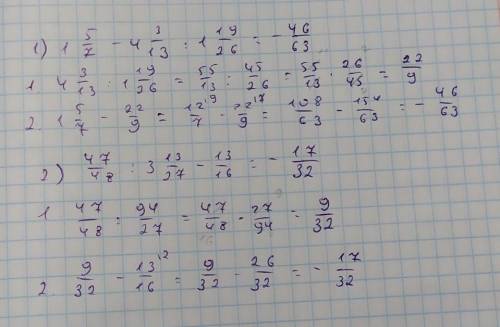 1) 1 5/7 - 4 3/13 : 1 19/26 = - 46/63
1. 4 3/13 : 1 19/26 = 55/13 : 45/26 = 55/13 · 26/45 = 22/9
2. 1 5/7 - 22/9 = 12/7 ⁹ - 22/9 ⁷ = 108/63 - 154/63 = - 46/63
2) 47/48 : 3 13/27 - 13/16 = - 17/32
1 47/48 : 94/27 = 47/48 · 27/94 = 9/32
2. 9/32 - 13/16 ² = 9/32 - 26/32 = - 17/32